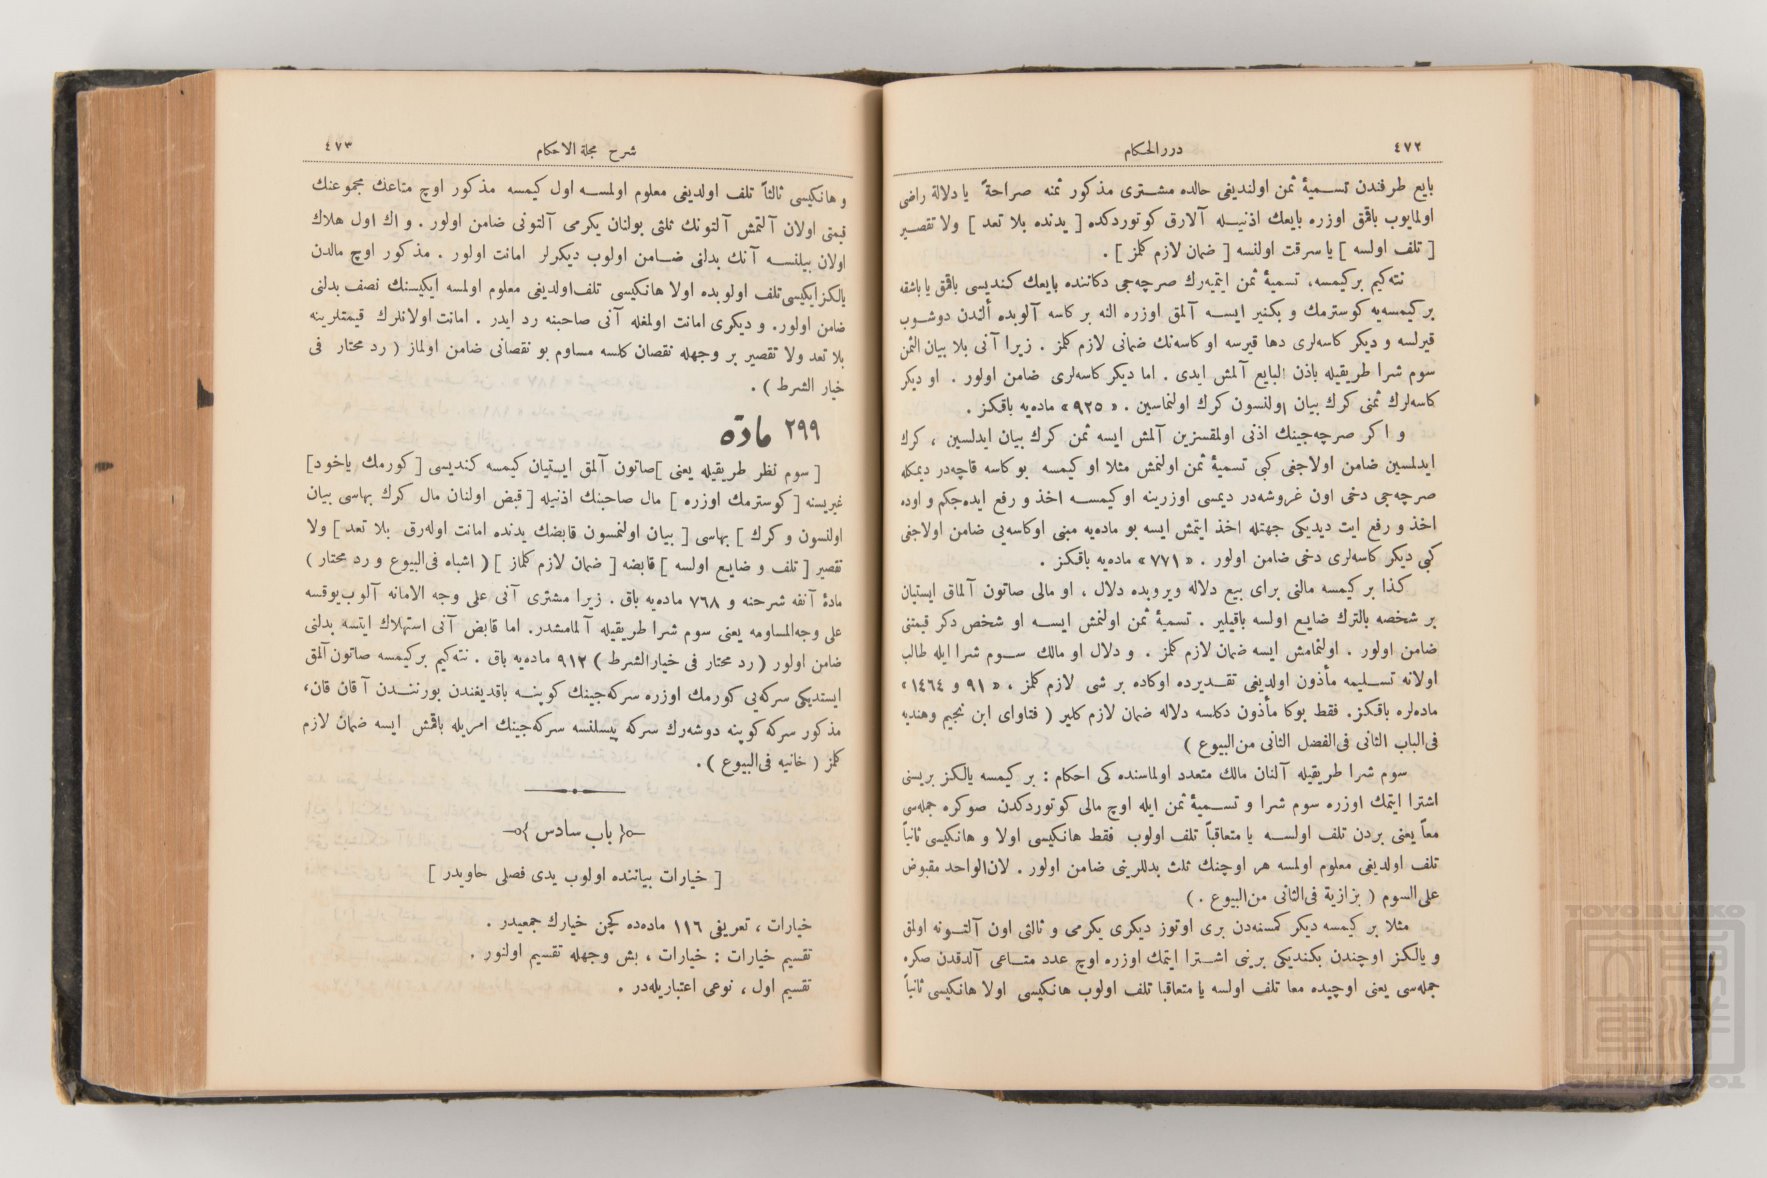 ٤٧٢
دررالحكام
بايع طرفندن تسميهٔ ثمن اولنديغى حالده مشترى مذكور ثمنه صراحةً يا دلالة راضى
اولمايوب باقمق اوزره بايعك اذنيله آلارق كوتوردكده [ يدنده بلا تعد ] ولا تقصير
[ تلف اولسه ] يا سرقت اولنسه [ ضمان لازم كلمز ] .
نته‌كيم بركيمسه، تسميهٔ ثمن ايتميه‌رك صرچه‌جى دكاننده بايعك كنديسى باقمق يا باشقه
بر كيمسه‌يه كوسترمك و بكنير ايسه آلمق اوزره النه بر كاسه آلوبده ألندن دوشوب
قيرلسه و ديكر كاسه‌لرى دها قيرسه او كاسه‌نك ضمانى لازم كلمز . زيرا آنى بلا بيان الثمن
سوم شرا طريقيله باذن البايع آلمش ايدى . اما ديكر كاسه‌لرى ضامن اولور . او ديكر
كاسه‌لرك ثمنى كرك بيان اولنسون كرك اولنماسين . « ٩٢٥ » ماده‌يه باقكز .
و اكر صرچه‌جينك اذنى اولمقسزين آلمش ايسه ثمن كرك بيان ايدلسين ، كرك
ايدلمسين ضامن اولاجغى كبى تسميهٔ ثمن اولنمش مثلا او كيمسه بو كاسه قاچه‌در ديمكله
صرچه‌جى دخى اون غروشه‌در ديمسى اوزرينه او كيمسه اخذ و رفع ايده‌جكم و اوده
اخذ و رفع ايت ديديكى جهتله اخذ ايتمش ايسه بو ماده‌يه مبنى اوكاسه‌يى ضامن اولاجغى
كبى ديكر كاسه‌لرى دخى ضامن اولور . « ٧٧١ » ماده‌يه باقكز .
كذا بر كيمسه مالنى براى بيع دلاله ويروبده دلال ، او مالى صاتون آلماق ايستيان
بر شخصه بالترك ضايع اولسه باقيلير . تسميهٔ ثمن اولنمش ايسه او شخص دكر قيمتنى
ضامن اولور . اولنمامش ايسه ضمان لازم كلمز . و دلال او مالك سوم شرا ايله طالب
اولانه تسليمه مأذون اولديغى تقديرده اوكاده بر شى لازم كلمز ، « ٩١ و ١٤٦٤ »
ماده‌لره باقكز. فقط بوكا مأذون دكلسه دلاله ضمان لازم كلير ( فتاواى ابن نجيم وهنديه
فى‌الباب الثانى فى‌الفضل الثانى من‌البيوع )
سوم شرا طريقيله آلنان مالك متعدد اولماسنده كى احكام : بر كيمسه يالكز بريسنى
اشترا ايتمك اوزره سوم شرا و تسميهٔ ثمن ايله اوچ مالى كوتوردكدن صوكره جمله‌سى
معاً يعنى بردن تلف اولسه يا متعاقباً تلف اولوب فقط هانكيسى اولا و هانكيسى ثانياً
تلف اولديغى معلوم اولمسه هر اوچنك ثلث بدللرينى ضامن اولور . لان‌الواحد مقبوض
على‌السوم ( بزازية فى‌الثانى من‌البيوع . )
مثلا بر كيمسه ديكر كمسنه‌دن برى اوتوز ديكرى يكرمى و ثالثى اون آلتونه اولمق
و يالكز اوچندن بكنديكى برينى اشترا ايتمك اوزره اوچ عدد متاعى آلدقدن صكره
جمله‌سى يعنى اوچيده معا تلف اولسه يا متعاقبا تلف اولوب هانكيسى اولا هانكيسى ثانياً
شرح مجلة الاحكام
٤٧٣
و هانكيسى ثالثاً تلف اولديغى معلوم اولمسه اول كيمسه مذكور اوچ متاعك مجموعنك
قيمتى اولان آلتمش آلتونك ثلثى بولنان يكرمى آلتونى ضامن اولور . و اك اول هلاك
اولان بيلنسه آنك بدلنى ضامن اولوب ديكرلر امانت اولور . مذكور اوچ مالدن
يالكز ايكيسى تلف اولوبده اولا هانكيسى تلف‌اولديغى معلوم اولمسه ايكيسنك نصف بدلنى
ضامن اولور. و ديكرى امانت اولمغله آنى صاحبنه رد ايدر . امانت اولانلرك قيمتلرينه
بلا تعد ولا تقصير بر وجهله نقصان كلسه مساوم بو نقصانى ضامن اولماز ( رد محتار فى
خيار الشرط ) .
٢٩٩ مادّه
[ سوم نظر طريقيله يعنى ] صاتون آلمق ايستيان كيمسه كنديسى [ كورمك ياخود]
غيريسنه [ كوسترمك اوزره ] مال صاحبنك اذنيله [ قبض اولنان مال كرك بهاسى بيان
اولنسون و كرك ] بهاسى [ بيان اولنمسون قابضك يدنده امانت اوله‌رق بلا تعد ] ولا
تقصير [ تلف و ضايع اولسه ] قابضه [ ضمان لازم كلماز ] ( اشباه فى‌البيوع و رد محتار )
مادهٔ آنفه شرحنه و ٧٦٨ ماده‌يه باق . زيرا مشترى آنى على وجه الامانه آلوب‌يوقسه
على وجه‌المساومه يعنى سوم شرا طريقيله آلمامشدر. اما قابض آنى استهلاك ايتسه بدلنى
ضامن اولور ( رد محتار فى خيارالشرط ) ٩١٢ ماده‌يه باق . نته‌كيم بركيمسه صاتون آلمق
ايستديكى سركه‌يى كورمك اوزره سركه‌جينك كوپنه باقديغندن بورنندن آقان قان،
مذكور سركه كوپنه دوشه‌رك سركه پيسلنسه سركه‌جينك امريله باقمش ايسه ضمان لازم
كلمز ( خانيه فى‌البيوع ) .
{ باب سادس }
[ خيارات بياننده اولوب يدى فصلى حاويدر ]
خيارات ، تعريفى ١١٦ ماده‌ده كچن خيارك جمعيدر .
تقسيم خيارات : خيارات ، بش وجهله تقسيم اولنور .
تقسيم اول ، نوعى اعتباريله‌در .
TOYO BUNKO